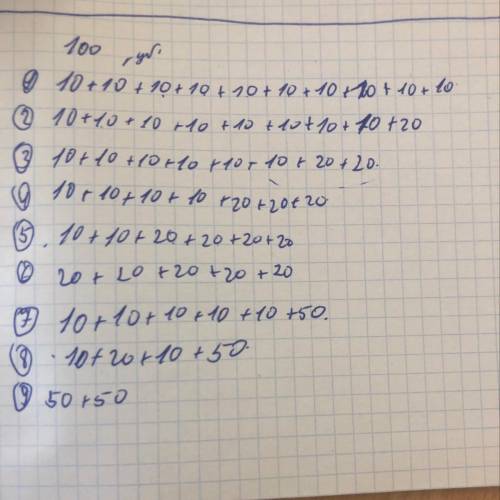 100 руб.
① 10+10+10+10+10+10+10+10+10+10
② 10+10+10+10+10+10+10+10+20
③ 10+10+10+10+10+10+20+20.
④ 10+10+10+10+20+20+20
⑤ 10+10+20+20+20+20
⑥ 20+20+20+20+20
⑦ 10+10+10+10+10+50.
⑧ 10+20+10+50.
⑨ 50+50